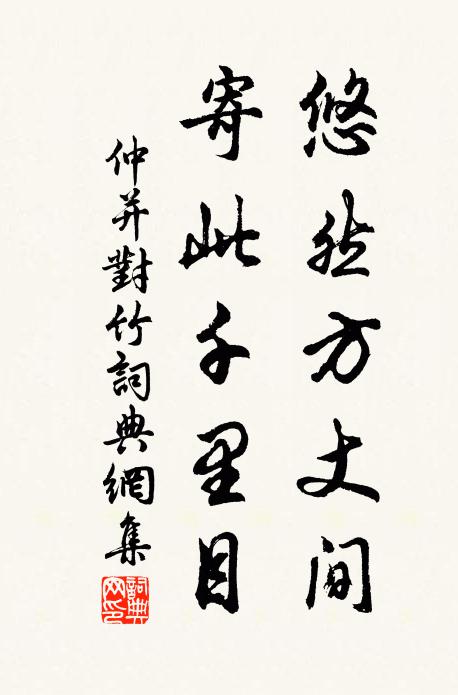 悠然方丈間
寄此千里目
仲并對竹詞典網集
詞典網印